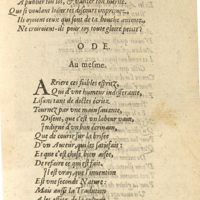 A publier ton los, & chanter ton merite.
Que si voulant hiurer tes discours
Ils oyoient ceux qui sont de ta bouche
Ne creuroient-ils pour toy toute gloire petite?
ODE.
Au mesme.
ARriere ces foibles espritz,
Qui d'vne humeur indifferante,
Lisant tant de doctes écritz
Tournez par vne main sçauante,
Disent, que c'est vn labeur vain,
Indigne d'vn bon écriuain,
Que de courir sur la brisée
D'vn Auteur, qui les satisfait:
Et que c'est chose bien aisée,
De refaire ce qui est fait.
Il est vray, que l'inuention
Est vne seconde Nature:
Mais aussi la Traduction